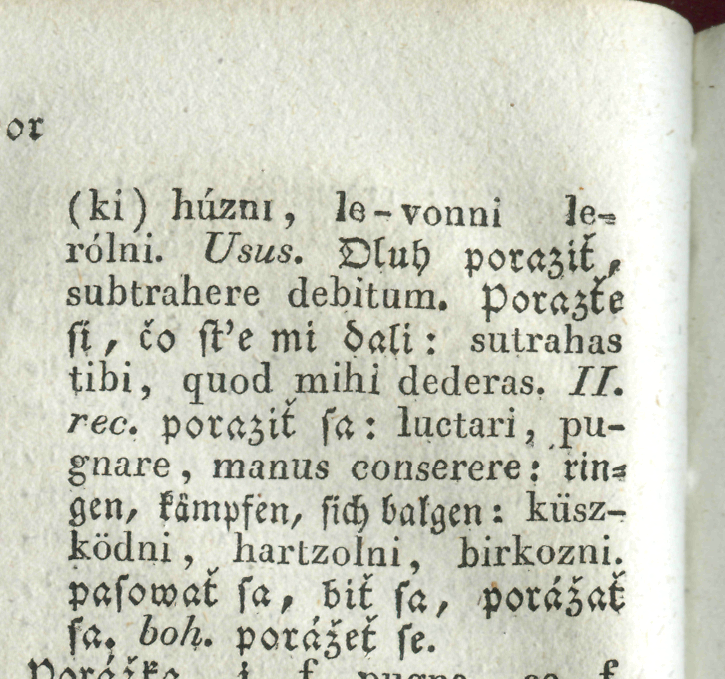 or
(ki) húzni, le-vonni le-
rólni. Usus. Dluh poraziť,
subtrahere debitum. Porazťe
si, čo sťe mi dali: sutrahas
tibi, quod mihi dederas. II.
rec. poraziť sa: luctari, pu-
gnare, manus conserere: rin-
gen, kåmpfen, sich balgen: küsz-
ködni, hartzolni, birkozni.
pasowať sa, biť sa, porážať
sa. boh. porážeť se.
Porážka, i, f. pugna, ae f.